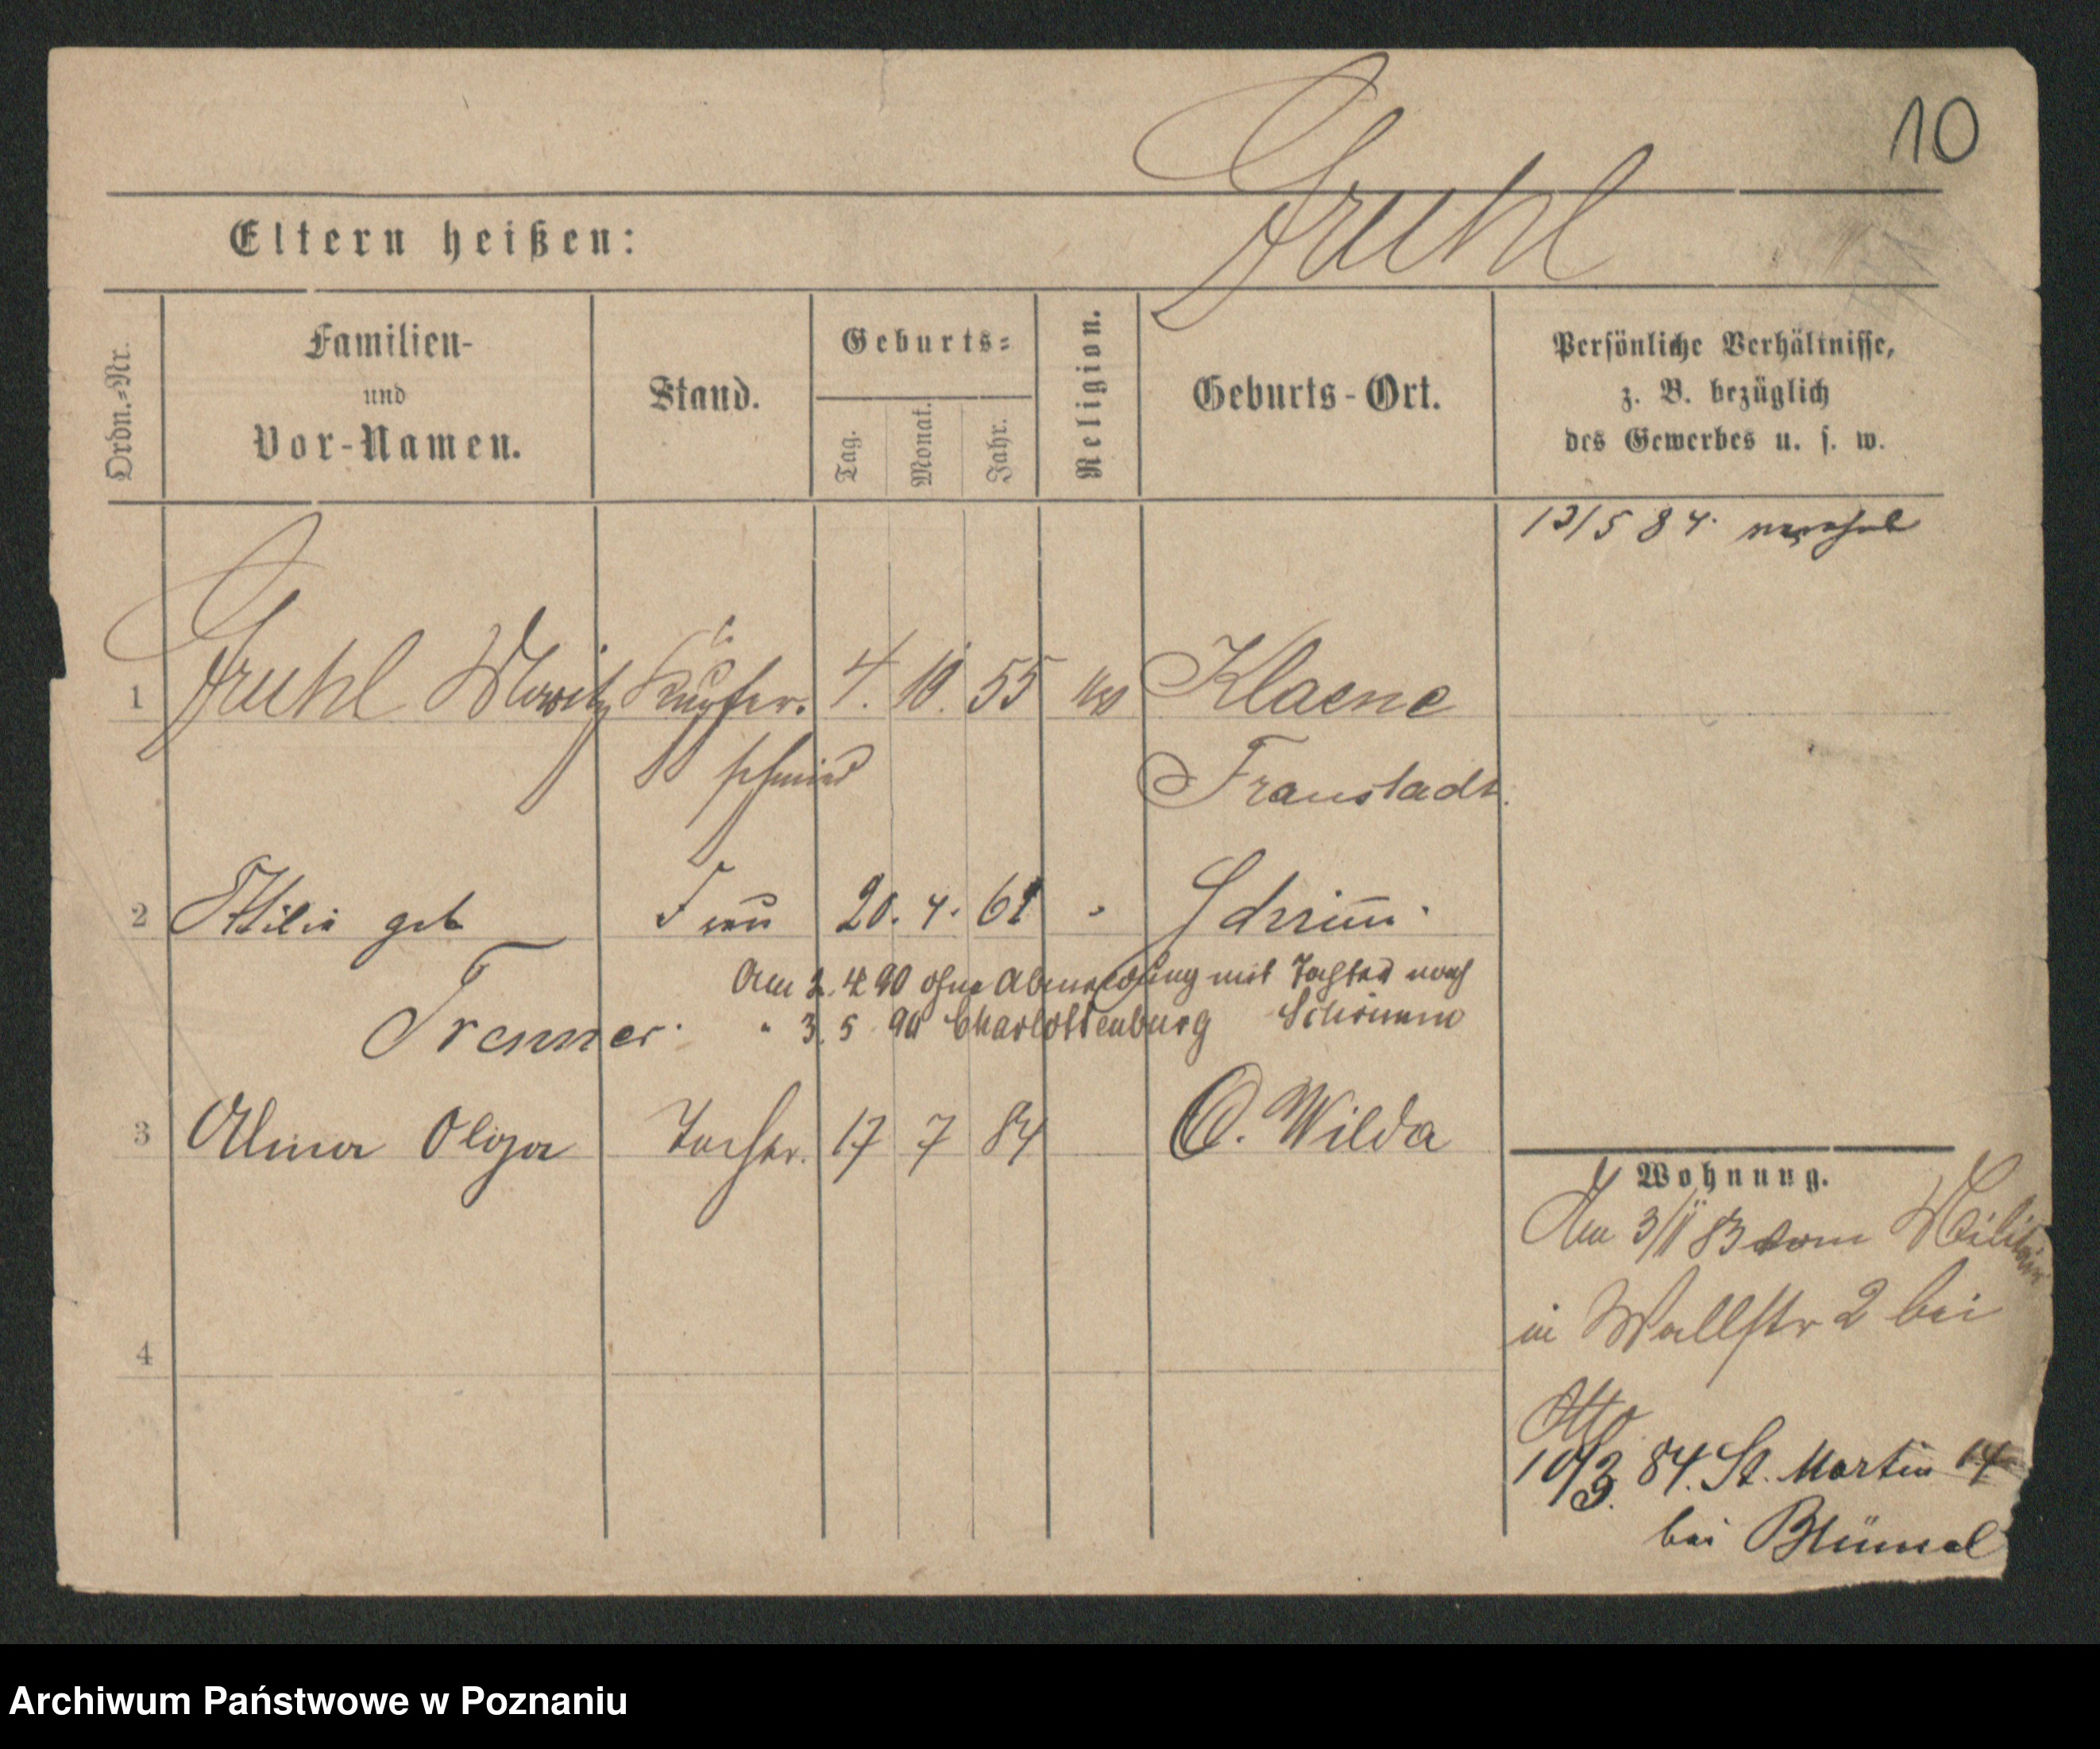 10
Gruhl
Eltern heißen:
Ordn.-Nr.
Familien-
und
Vor-Namen.
Stand.
Geburts-
Tag.
Monat.
Jahr.
Religion.
Geburts-Ort.
Persönliche Verhältnisse,
z. B. bezüglich
des Gewerbes u. s. w.
13/5 84.
1 Gruhl Moritz Kupfer- 4. 10. 55 Klaene
schmied Fraustadt.
2 Ottilie geb Frau 20. 4. 61 " Schrim̄.
Am 2. 4 90 ohne Abmeldung mit Tochter nach
Schrimm
Trenner. " 3. 5 90 Charlottenburg
3 Alma Olga Tochter. 17 7 84 O. Wilda
4
Wohnung.
Am 3/11 83 vom Militair
in Wallstr 2 bei
Otto
10/3. 84. St. Martin 14
bei Blümel
Archiwum Państwowe w Poznaniu